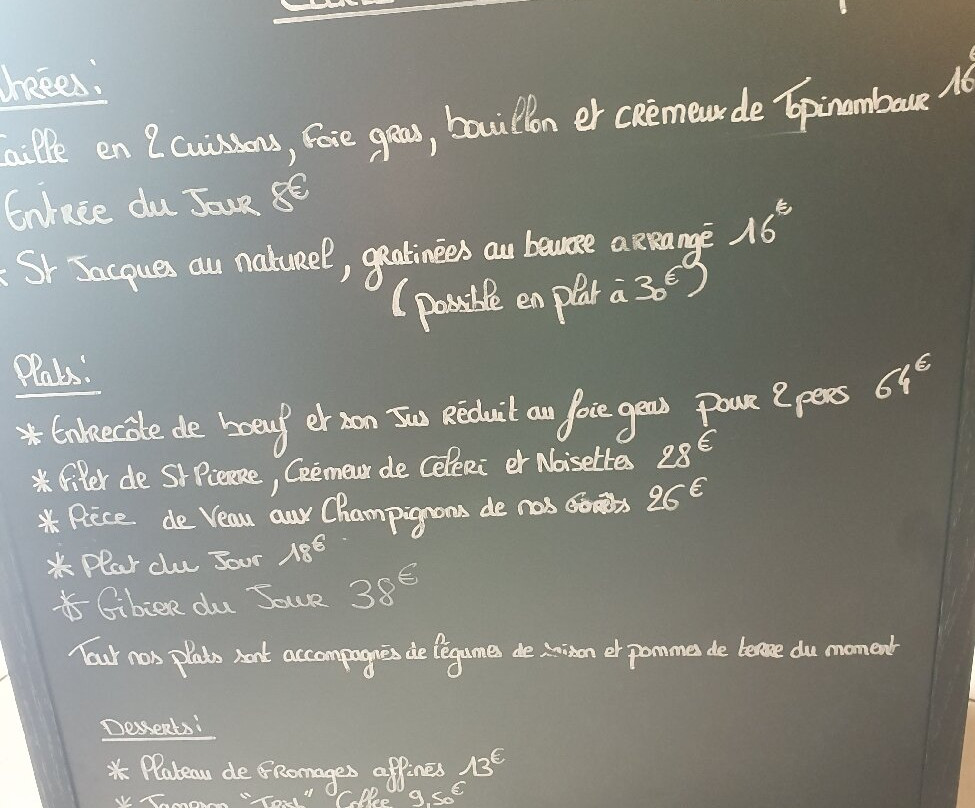 trées:
Caille en 2 cuissons, foie gras, bouillon et crémeux de Topinambour 16€
Entrée du Jour 8€
* St Jacques au naturel, gratinées au beurre arrangé 16€
(possible en plat à 30€)
Plats:
* Entrecôte de boeuf et son jus Réduit au foie gras pour 2 pers 64€
* Filet de St Pierre, Crémeux de Céleri et Noisettes 28€
* Pièce de Veau aux Champignons de nos 26€
* Plat du Jour 18€
* Gibier du Jour 38€
Tout nos plats sont accompagnés de légumes de saison et pommes de terre du moment
Desserts:
* Plateau de Fromages affinés 13€
* Jameson "Irish" Coffee 9,50€